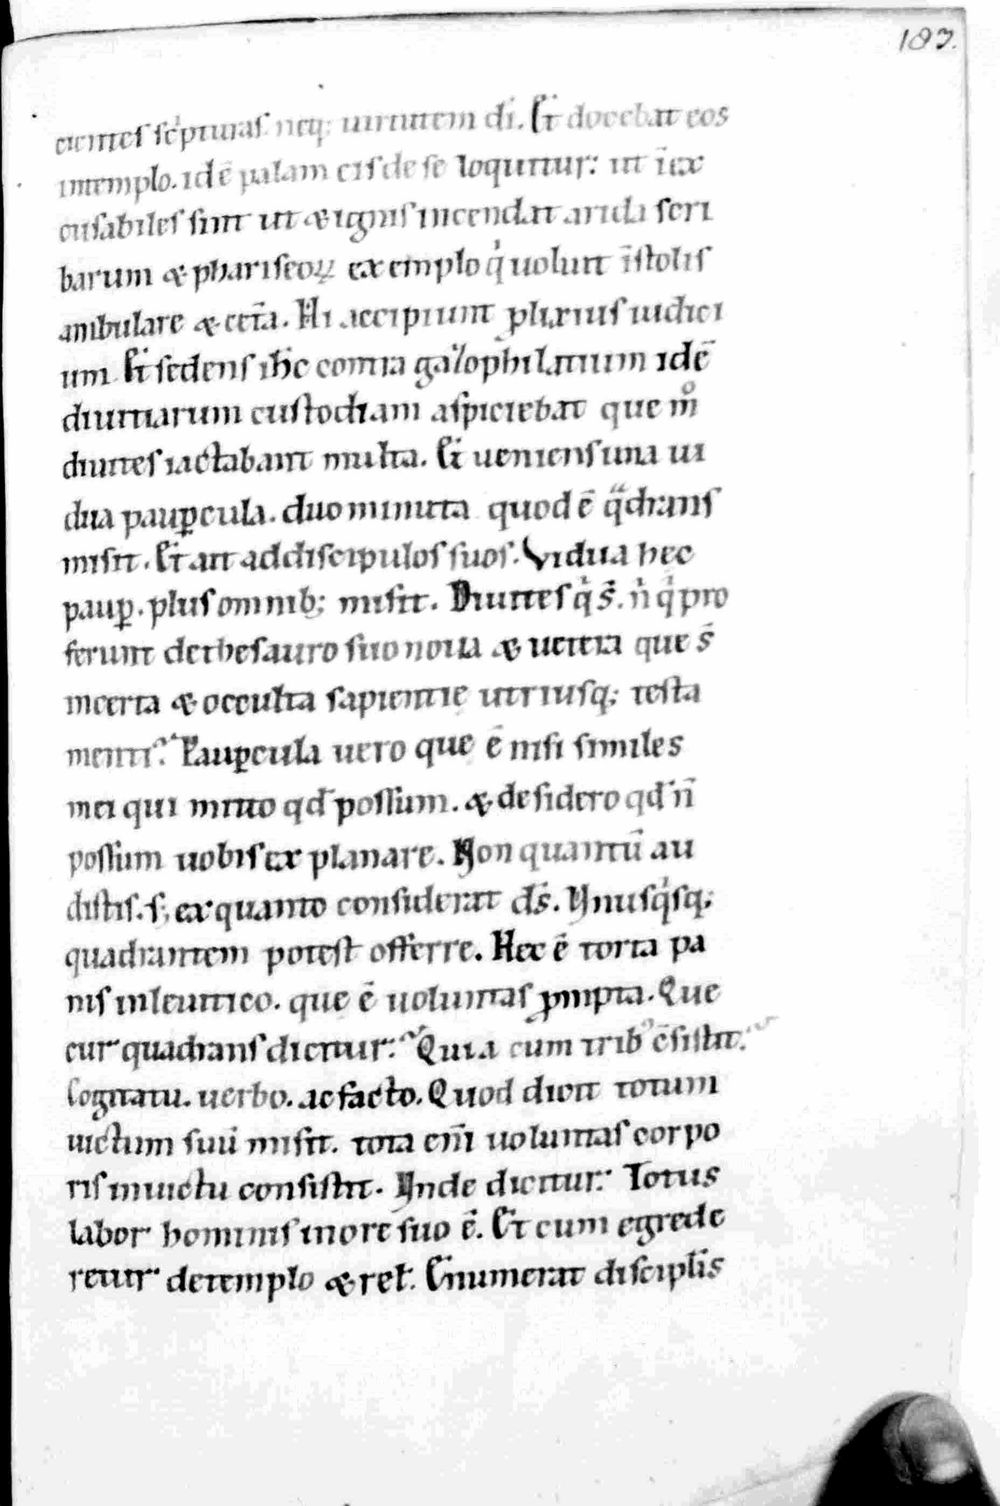 187.
cientes sc̄pturas neq; uirtutem dī. Et docebat eos
intemplo. idē palam eis de se loquitur: ut īex
cusabiles sint ut & ignis incendat arida scri
barum & phariseoꝝ exemplo qͥ uolunt īstolis
ambulare & cet̄a. Hi accipiunt plixius iudici
um Et sedens ih̄c contra gazophilatium idē
diuitiarum custodiam aspiciebat que mͦ
diuites iactabant multa. Et ueniens una ui
dua paup̲cula. duo minuta quod ē qͣdrans
misit. Et ait ad discipulos suos. Vidua hec
paup̲. plus omnib; misit. Diuites qͥ s̄. n̄ qͥ pro
ferunt de thesauro suo noua & uetera que s̄
incerta & occulta sapientię utriusq; testa
menti? Paup̲cula uero que ē nisi similes
mei qui mitto qd̄ possum. & desidero qd̄ n̄
possum uobis explanare. Non quantū au
distis. s; ex quanto considerat ds̄. Vnusqͥsq;
quadrantem potest offerre. Hec ē torta pa
nis inleuitico. que ē uoluntas ꝓmpta. Que
cur quadrans dicitur: Quia cum tribꝰ c̄sistit.
Cogitatu. uerbo. ac facto. Quod dicit totum
uictum suū misit. tota eni̅ uoluntas corpo
ris inuictu consistit. Vnde dicitur: Totus
labor hominis inore suo ē. Et cum egrede
retur de templo & rel̄. Enumerat discipl̄is